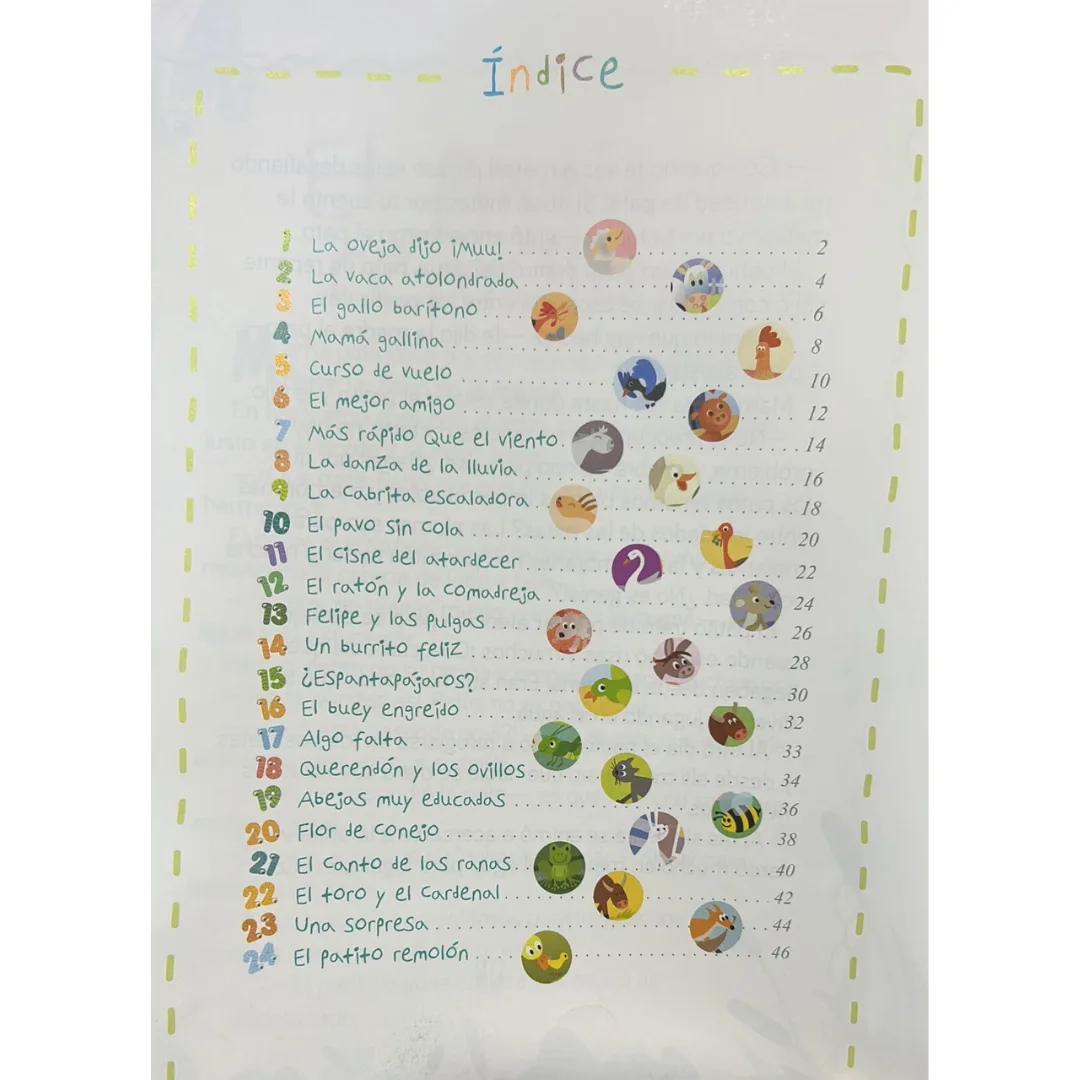 Índice
1 La oveja dijo ¡Muu! 2
2 La vaca atolondrada 4
3 El gallo barítono 6
4 Mamá gallina 8
5 Curso de vuelo 10
6 El mejor amigo 12
7 Más rápido que el viento 14
8 La danza de la lluvia 16
9 La cabrita escaladora 18
10 El pavo sin cola 20
11 El cisne del atardecer 22
12 El ratón y la comadreja 24
13 Felipe y las pulgas 26
14 Un burrito feliz 28
15 ¿Espantapájaros? 30
16 El buey engreído 32
17 Algo falta 33
18 Querendón y los ovillos 34
19 Abejas muy educadas 36
20 Flor de conejo 38
21 El canto de las ranas 40
22 El toro y el cardenal 42
23 Una sorpresa 44
24 El patito remolón 46